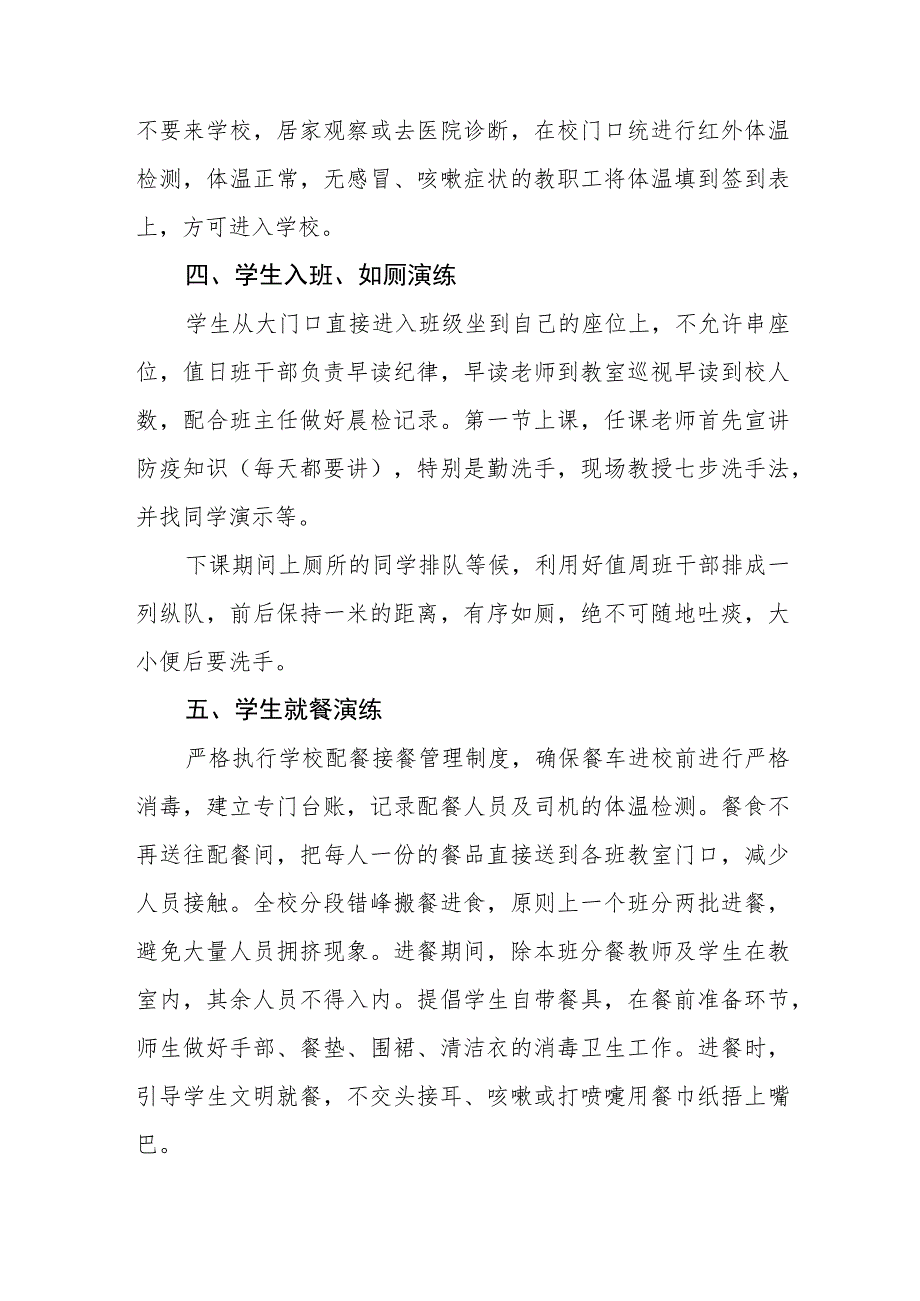 不要来学校，居家观察或去医院诊断，在校门口统进行红外体温
检测，体温正常，无感冒、咳嗽症状的教职工将体温填到签到表
上，方可进入学校。
四、学生入班、如厕演练
学生从大门口直接进入班级坐到自己的座位上，不允许串座
位，值日班干部负责早读纪律，早读老师到教室巡视早读到校人
数，配合班主任做好晨检记录。第一节上课，任课老师首先宣讲
防疫知识（每天都要讲），特别是勤洗手，现场教授七步洗手法，
并找同学演示等。
下课期间上厕所的同学排队等候，利用好值周班干部排成一
列纵队，前后保持一米的距离，有序如厕，绝不可随地吐痰，大
小便后要洗手。
五、学生就餐演练
严格执行学校配餐接餐管理制度，确保餐车进校前进行严格
消毒，建立专门台账，记录配餐人员及司机的体温检测。餐食不
再送往配餐间，把每人一份的餐品直接送到各班教室门口，减少
人员接触。全校分段错峰搬餐进食，原则上一个班分两批进餐，
避免大量人员拥挤现象。进餐期间，除本班分餐教师及学生在教
室内，其余人员不得入内。提倡学生自带餐具，在餐前准备环节，
师生做好手部、餐垫、围裙、清洁衣的消毒卫生工作。进餐时，
引导学生文明就餐，不交头接耳、咳嗽或打喷嚏用餐巾纸捂上嘴
巴。